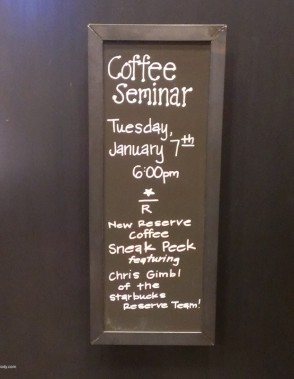 Coffee
Seminar
Tuesday,
January 7th
6:00pm
R
New Reserve
Coffee
Sneak Peek
featuring
Chris Gimbl
of the
Starbucks
Reserve Team!